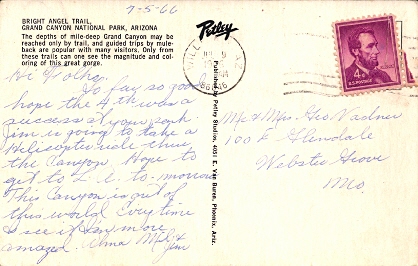 7-5-66
BRIGHT ANGEL TRAIL,
GRAND CANYON NATIONAL PARK, ARIZONA
The depths of mile-deep Grand Canyon may be
reached only by trail, and guided trips by mule-
back are popular with many visitors. Only from
these trails can one see the magnitude and col-
oring of this great gorge.
Hi Folks,
So far so good
hope the 4th was a
success at your park
Jim is going to take a
Helicopter ride thru
the Canyon. Hope to
get to L.A. to-morrow
This Canyon is out of
this world. Every time
I see it I'm more
amazed.
Jim
Petley
Published by Petley Studios, 4051 E. Van Buren, Phoenix, Ariz.
4¢
U.S. POSTAGE
Mr & Mrs. Geo
100 E Glendale
Webster Grove
Mo.